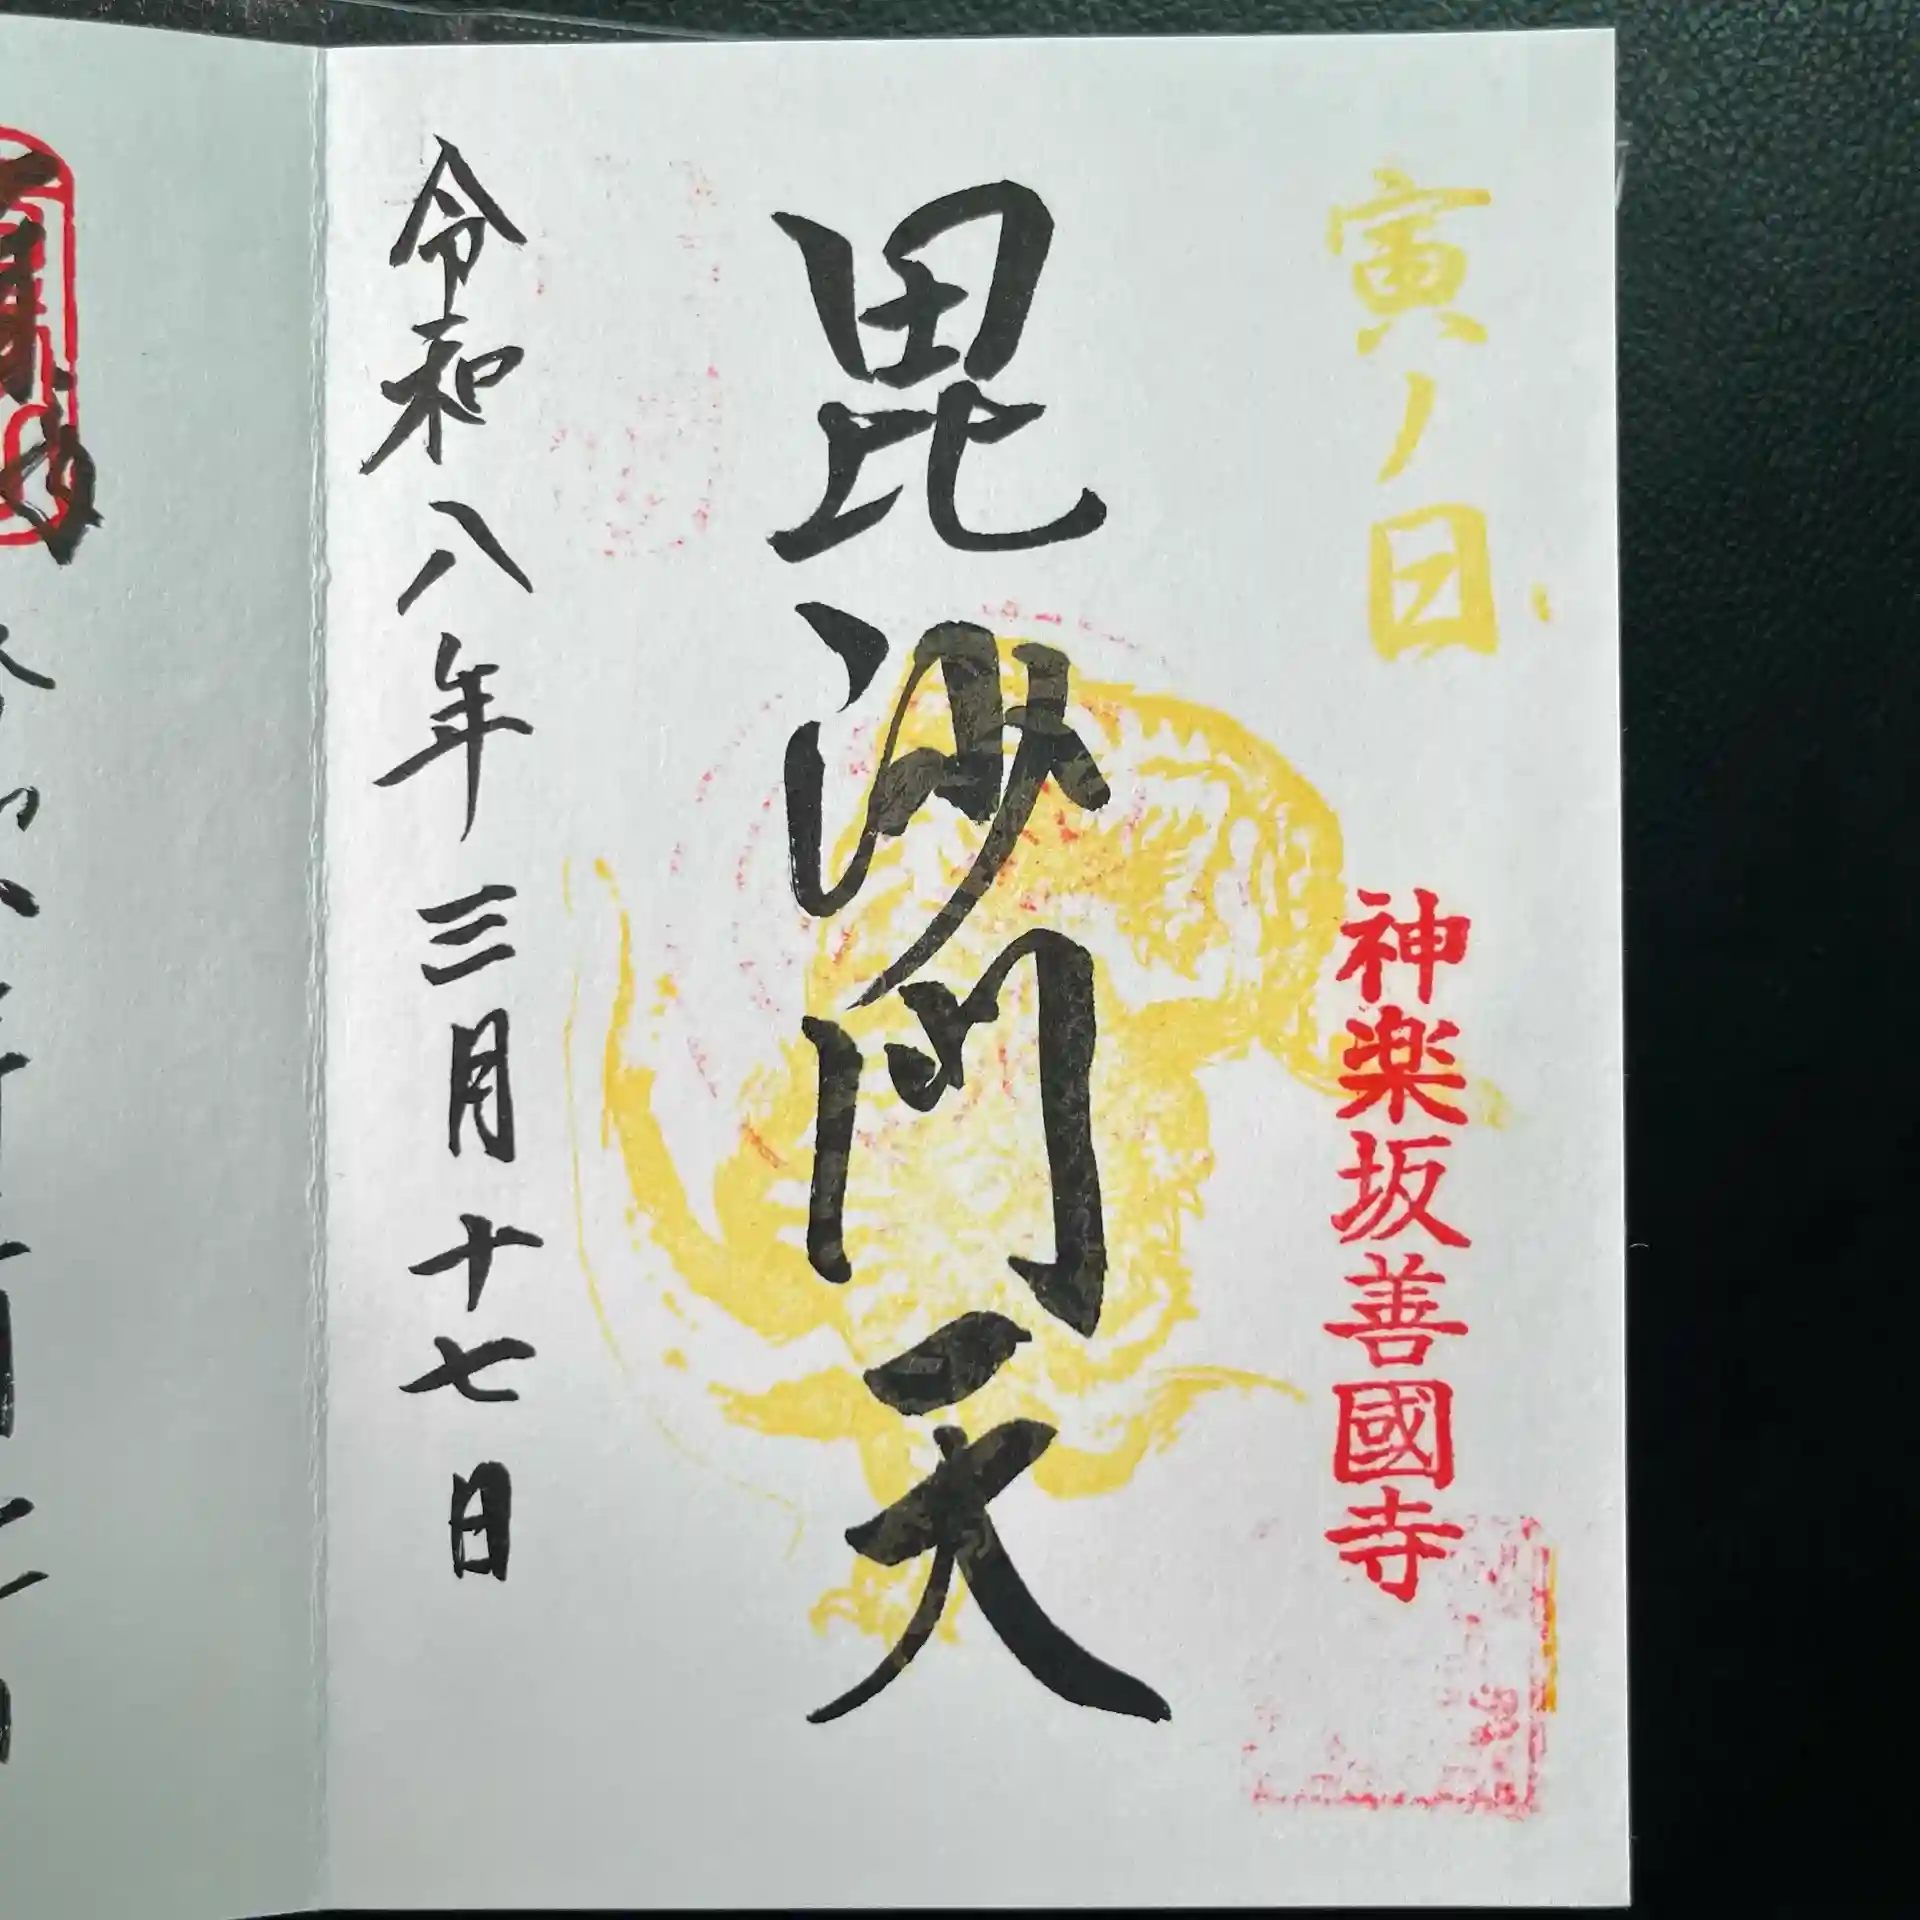 寅ノ日
神楽坂善國寺
毘沙門天
令和八年三月十七日